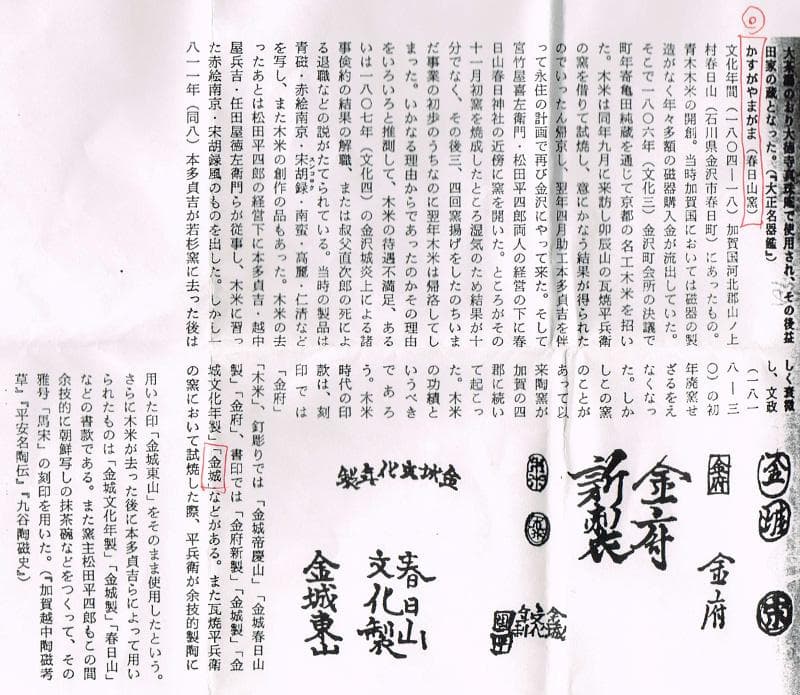 大茶湯のおり大徳寺真珠庵で使用され、その後益
田家の蔵となった。(『大正名器鑑』)
かすがやまがま(春日山窯)
文化年間(一八〇四―一八)加賀国河北郡山ノ上
村春日山(石川県金沢市春日町)にあったもの。
青木木米の開創。当時加賀国においては磁器の製
造がなく年々多額の磁器購入金が流出していた。
そこで一八〇六年(文化三)金沢町会所の決議で
町年寄亀田純蔵を通じて京都の名工木米を招い
た。木米は同年九月に来訪し卯辰山の瓦焼平兵衛
の窯を借りて試焼し、意にかなう結果が得られた
のでいったん帰京し、翌年四月助工本多貞吉を伴
って永住の計画で再び金沢にやって来た。そして
宮竹屋喜左衛門・松田平四郎両人の経営の下に春
日山春日神社の近傍に窯を開いた。ところがその
十一月初窯を焼成したところ湿気のため結果が十
分でなく、その後三、四回窯揚げをしたのちいま
だ事業の初歩のうちなのに翌年木米は帰洛してし
まった。いかなる理由からであったのかその理由
をいろいろと推測して、木米の待遇不満足、ある
いは一八〇七年(文化四)の金沢城炎上による諸
事倹約の結果の解職、または叔父直次郎の死によ
る退職などの説がたてられている。当時の製品は
青磁・赤絵南京・宋胡録・南蛮・高麗・仁清など
スンコロク
を写し、また木米の創作の品もあった。木米の去
ったあとは松田平四郎の経営下に本多貞吉・越中
屋兵吉・任田屋徳左衛門らが従事し、木米に習っ
た赤絵南京・宋胡録風のものを出した。しかし一
八一一年(同八)本多貞吉が若杉窯に去った後は
しく衰微
し、文政
(一八一
八―三
〇)の初
年廃窯せ
ざるをえ
なくなっ
た。しか
しこの窯
のことが
あって以
来陶窯が
加賀の四
郡に続い
て起こっ
た。木米
の功績と
いうべき
であろ
う。木米
時代の印
款は、刻
印では
「金府」
「木米」、釘彫りでは「金城帝慶山」「金城春日山
製」「金府」、書印では「金府新製」「金城製」「金
城文化年製」「金城」などがある。また瓦焼平兵衛
の窯において試焼した際、平兵衛が余技的製陶に
用いた印「金城東山」をそのまま使用したという。
さらに木米が去った後に本多貞吉らによって用い
られたものは「金城文化年製」「金城製」「春日山」
などの書款である。また窯主松田平四郎もこの間
余技的に朝鮮写しの抹茶碗などをつくって、その
雅号「馬宋」の刻印を用いた。(『加賀越中陶磁考
草』『平安名陶伝』『九谷陶磁史』)
金府
金府
金府
新製
金城文化年製
春日山
文化製
金城東山